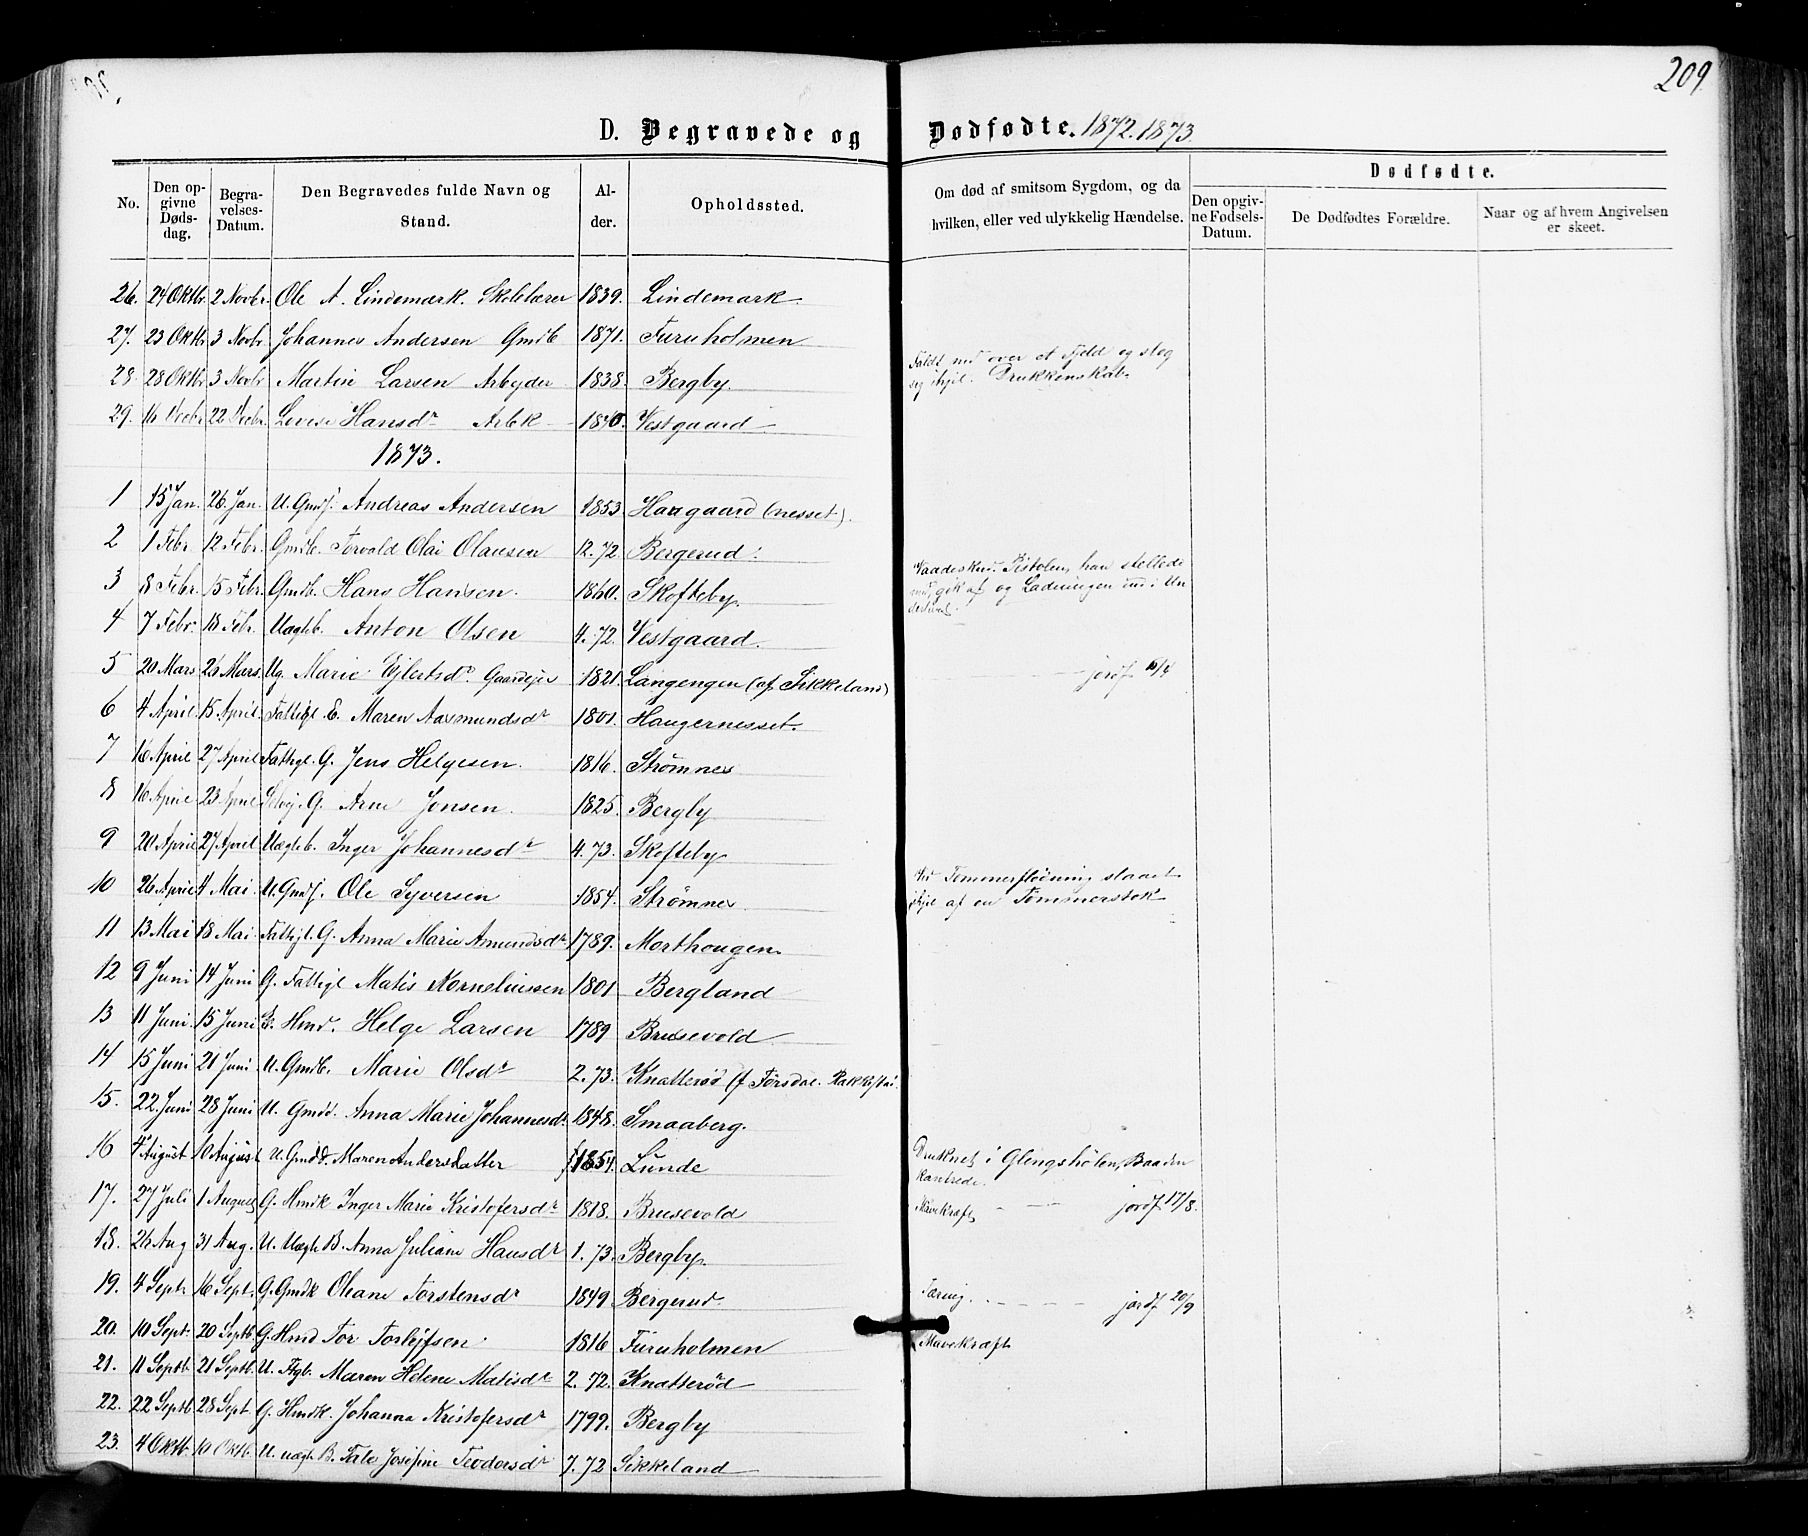 209
D. Begravede og Dødfødte. 1872. 1873.
No.
Den opgivne Dødsdag.
Begravelses-Datum.
Den Begravedes fulde Navn og Stand.
Alder.
Opholdssted.
Om død af smitsom Sygdom, og da hvilken, eller ved ulykkelig Hændelse.
Dødfødte.
Den opgivne Fødsels-Datum.
De Dødfødtes Forældre.
Naar og af hvem Angivelsen er skeet.
26. 24 Oktbr. 2 Novbr. Ole A. Lindemark. Skolelærer 1839. Lindemark.
27. 23 Oktbr 3 Novbr. Johannes Andersen Gmdb 1871. Furuholmen
28. 28 Oktbr 3 Novbr. Martin Larsen Arbeider 1838. Bergby. Faldt ned over et Fjeld og slog seg ihjel. Drukkenskab.
29. 16 Decbr 22 Decbr. Lovise Hansdr Arbk 1840. Vestgaard
1873.
1 15 Jan. 26 Jan. U. Gmdf. Andreas Andersen 1853. Haugaard (nesset).
2 1 Febr 12 Febr. Gmdb. Torvald Olai Olausen 12.72. Bergerud.
3 8 Febr. 15 Febr. Gmdb. Hans Hansen. 1860. Skofteby. Vaadeskud. Pistolen, han stellede med, gik af og Ladningen ind i Underlivet.
4 7 Febr. 18 Febr. Uægteb. Anton Olsen 4.72. Vestgaard.
5 20 Mars 26 Mars. Ug. Marie Ejlertsdr Gaardejer 1821. Langengen (af Sikkeland) jordf.
6 4 April. 15 April. Fattigl. E. Maren Aasmundsdr 1801. Haugernesset.
7 16 April 27 April Fattigl. G. Jens Helgesen. 1816. Strømnes
8 16 April 23 April Selvej. G. Arne Jonsen. 1825. Bergby
9 20 April 27 April Uægteb. Inger Johannesdr 4.73. Skofteby
10 26 April 4 Mai U. Gmdf. Ole Syversen 1854. Strømnes Ved Tømmerflødning slaaet ihjel af en Tømmerstok
11 13 Mai 18 Mai. Fattigl. G. Anna Marie Amundsdr 1789. Morthougen
12 9 Juni 14 Juni G. Fattigl Matis Kornelinssen 1801 Bergland
13 11 Juni 15 Juni E. Hmd. Helge Larsen 1789 Brusevold
14 15 Juni 21 Juni. U. Gmdb. Marie Olsdr 2.73. Knatterød (f Torsdae. Rakkestad
15. 22 Juni 28 Juni U. Gmdd. Anna Marie Johannesdr 1848. Smaaberg.
16 4 August 10 August U. Gmdd. Maren Andersdatter 1854. Lunde Druknet i Glengshølen, Baaden kantrede.
17. 27 Juli 1 August G. Hmdk Inger Marie Kristofersdr 1818. Brusevold Mavekræft jordf 17/8.
18. 26 Aug 31 Aug. U. Uægte B. Anna Juliane Hansdr 1.73. Bergby.
19. 4 Septr 16 Sept. G. Gmdk Oleane Torstensdr 1849 Bergerud. Tæring. jordf 20/9
20. 10 Sept. 20 Septb. G. Hmd Tor Torlejfsen 1816 Furuholmen Mavekræft
21. 11 Septb. 21 Septb. U. Maren Helene Matisdr 2.72. Knatterød
22. 22 Septb 28 Sept G. Hmdk. Johanna Kristofersdr 1799. Bergby
23. 4 Oktb. 10 Oktb. U. uægte B. Josefine Teodorsdr 7.72 Sikkeland